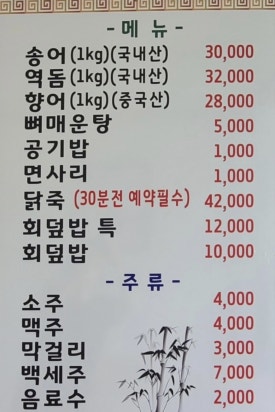 - 메 뉴 -
송어 (1kg)(국내산) 30,000
역돔 (1kg)(국내산) 32,000
향어 (1kg)(중국산) 28,000
뼈매운탕 5,000
공기밥 1,000
면사리 1,000
닭죽 (30분전 예약필수) 42,000
회덮밥 특 12,000
회덮밥 10,000
- 주 류 -
소주 4,000
맥주 4,000
막걸리 3,000
백세주 7,000
음료수 2,000